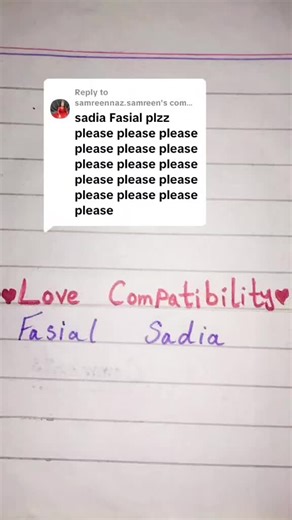 Reply to
samreennaz.samreen's com...
sadia Fasial plzz
please please please
please please please
please please please
please please please
please please please
please
♥Love Compatibility♥
Fasial Sadia